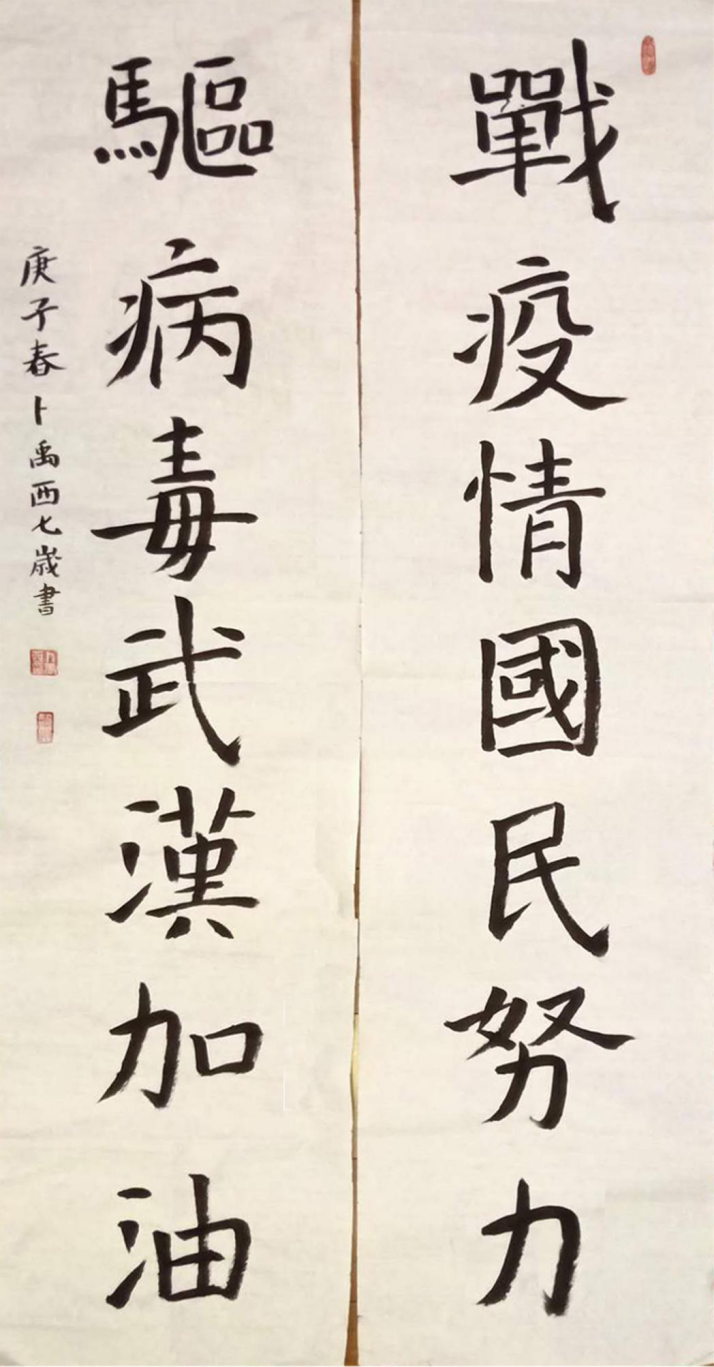 戰疫情國民努力
驅病毒武漢加油
庚子春卜禹西七歲書